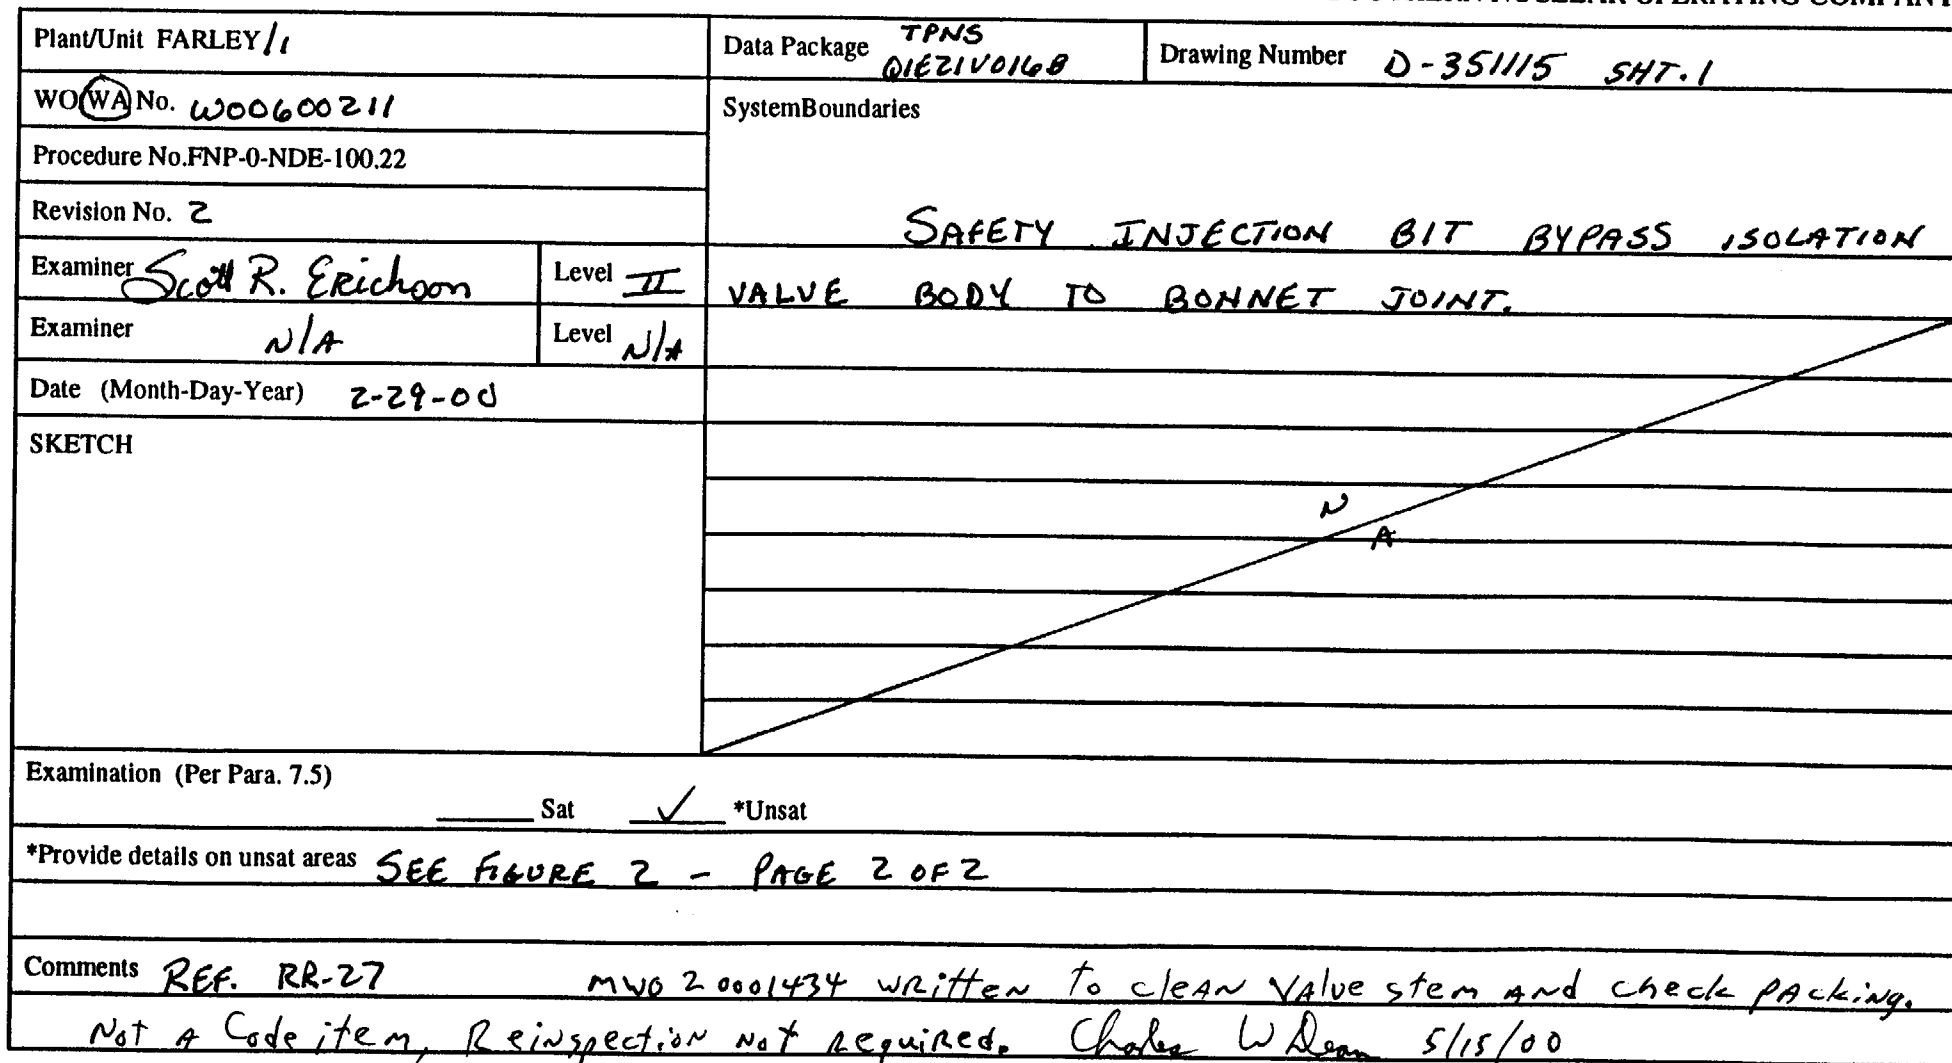 Plant/Unit FARLEY/1
Data Package TPNS
Q1E21V016B
Drawing Number D-351115 SHT.1
WO/WA No. W00600211
SystemBoundaries
Procedure No.FNP-0-NDE-100.22
Revision No. 2
SAFETY INJECTION BIT BYPASS ISOLATION
Examiner Scott R. Erickson Level II
VALVE BODY TO BONNET JOINT.
Examiner N/A Level N/A
Date (Month-Day-Year) 2-29-00
SKETCH
N
A
Examination (Per Para. 7.5)
Sat ✓ *Unsat
*Provide details on unsat areas SEE FIGURE 2 - PAGE 2 OF 2
Comments REF. RR-27 MWO 20001434 written to clean valve stem and check packing.
Not A Code item, Reinspection Not Required. Charles W Dean 5/15/00